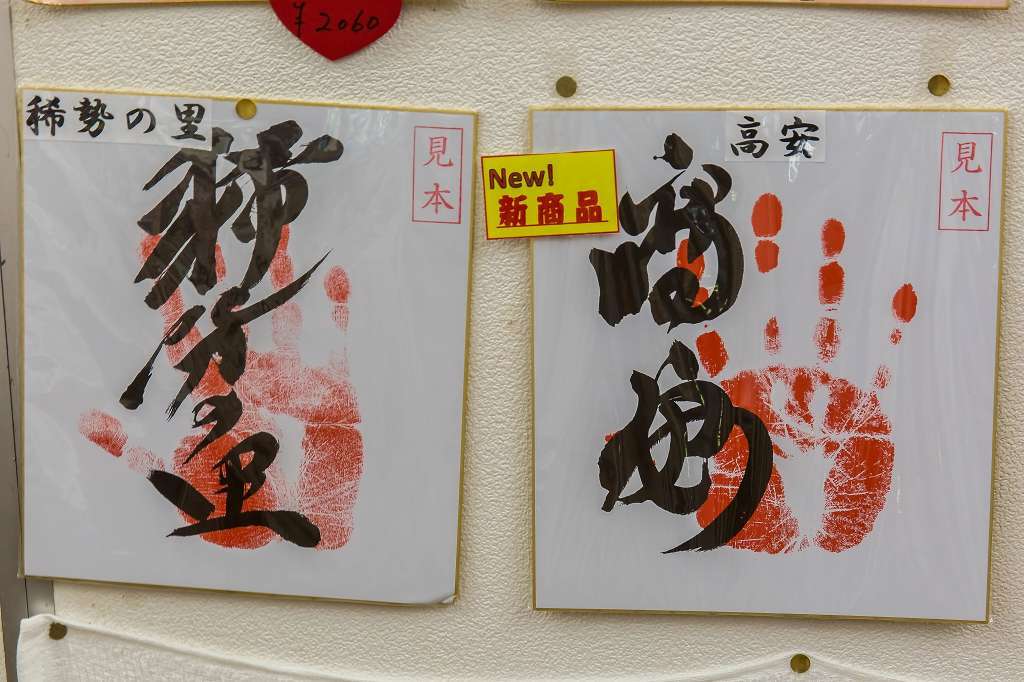 ¥2060
稀勢の里
見本
稀勢の里
New!
新商品
高安
見本
高安